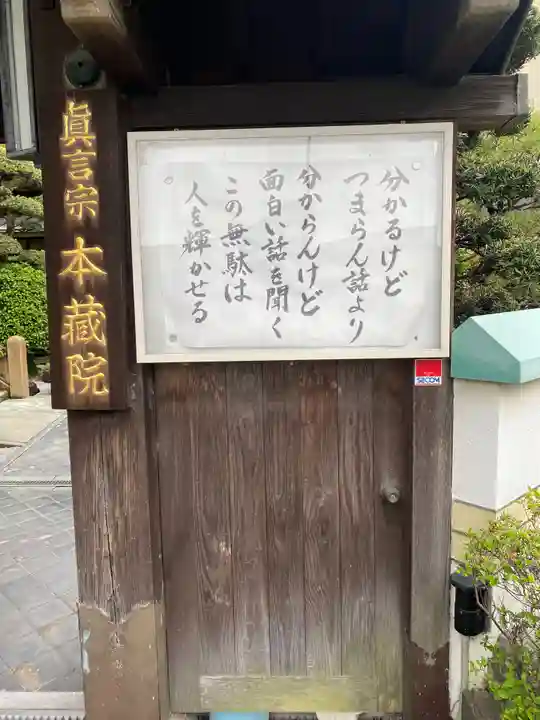 眞言宗 本藏院
分かるけど
つまらん話より
分からんけど
面白い話を聞く
この無駄は
人を輝かせる
SECOM